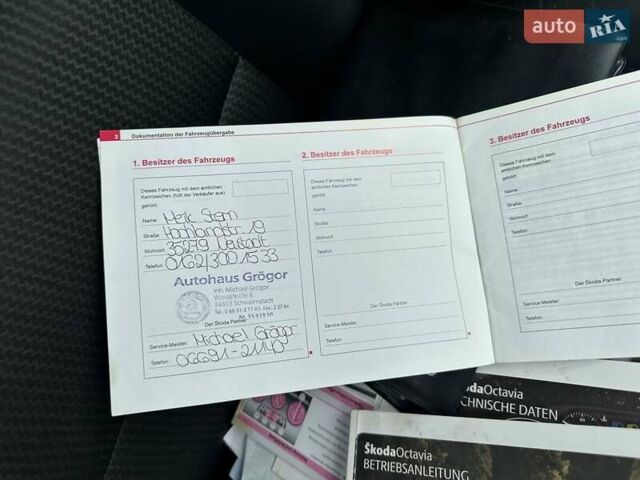 auto RIA.com
2 Dokumentation der Fahrzeugübergabe
1. Besitzer des Fahrzeugs
Dieses Fahrzeug mit dem amtlichen
Kennzeichen (füllt der Verkäufer aus)
gehört:
Name: Meik Stern
Straße: Hochlandstr. 19
Wohnort: 35279 Neustadt
Telefon: 0162/300 15 33
Autohaus Grögor
Inh. Michael Grögor
34613 Schwalmstadt
Der Škoda Partner
Service-Meister: Michael Grögor
Telefon: 06691-21143
2. Besitzer des Fahrzeugs
Dieses Fahrzeug mit dem
amtlichen Kennzeichen
gehört:
Name:
Straße:
Wohnort:
Telefon:
Der Škoda Partner
Service-Meister:
Telefon:
3. Besitzer des Fahrzeugs
Dieses Fahrzeug mit dem
amtlichen Kennzeichen
gehört:
Name:
Straße:
Wohnort:
Telefon:
Service-Meister:
Telefon:
daOctavia
CHNISCHE DATEN
ŠkodaOctavia
BETRIEBSANLEITUNG